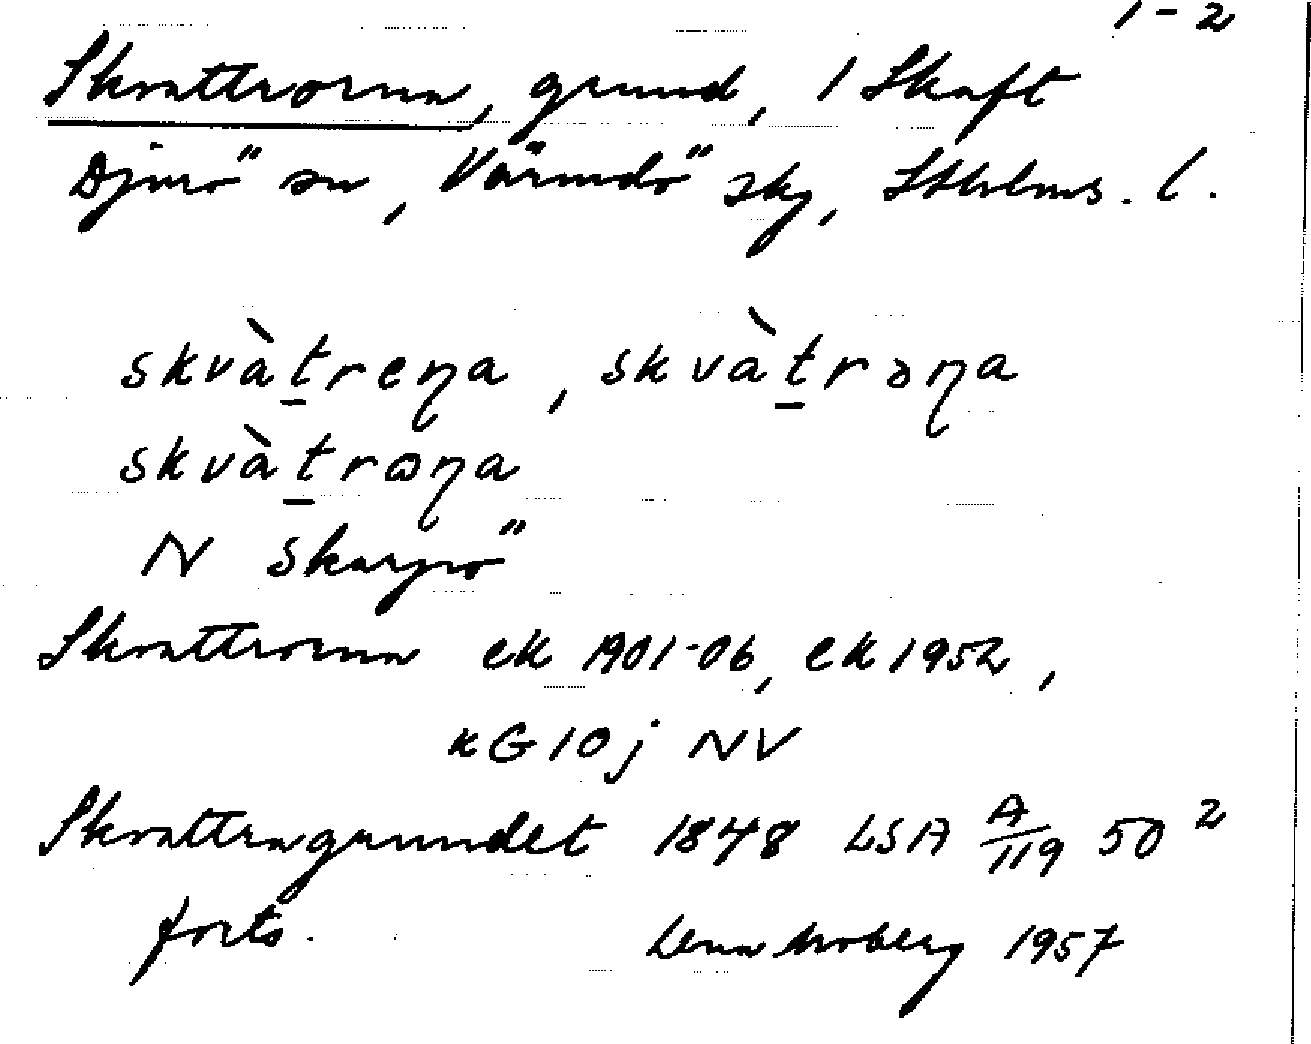 1-2
Skvattrorna, grund, 1 Skaft
Djurö sn, Värmdö skg, Stholms. l.
skvàt̠reƞa, skvàt̠rəƞa
skvàt̠rɷƞa
N Skarpö
Skvattrorna ek 1901-06, ek 1952,
kG 10j NV
Skvattragrundet 1848 LSA A/119 50²
forts. Lena Moberg 1957